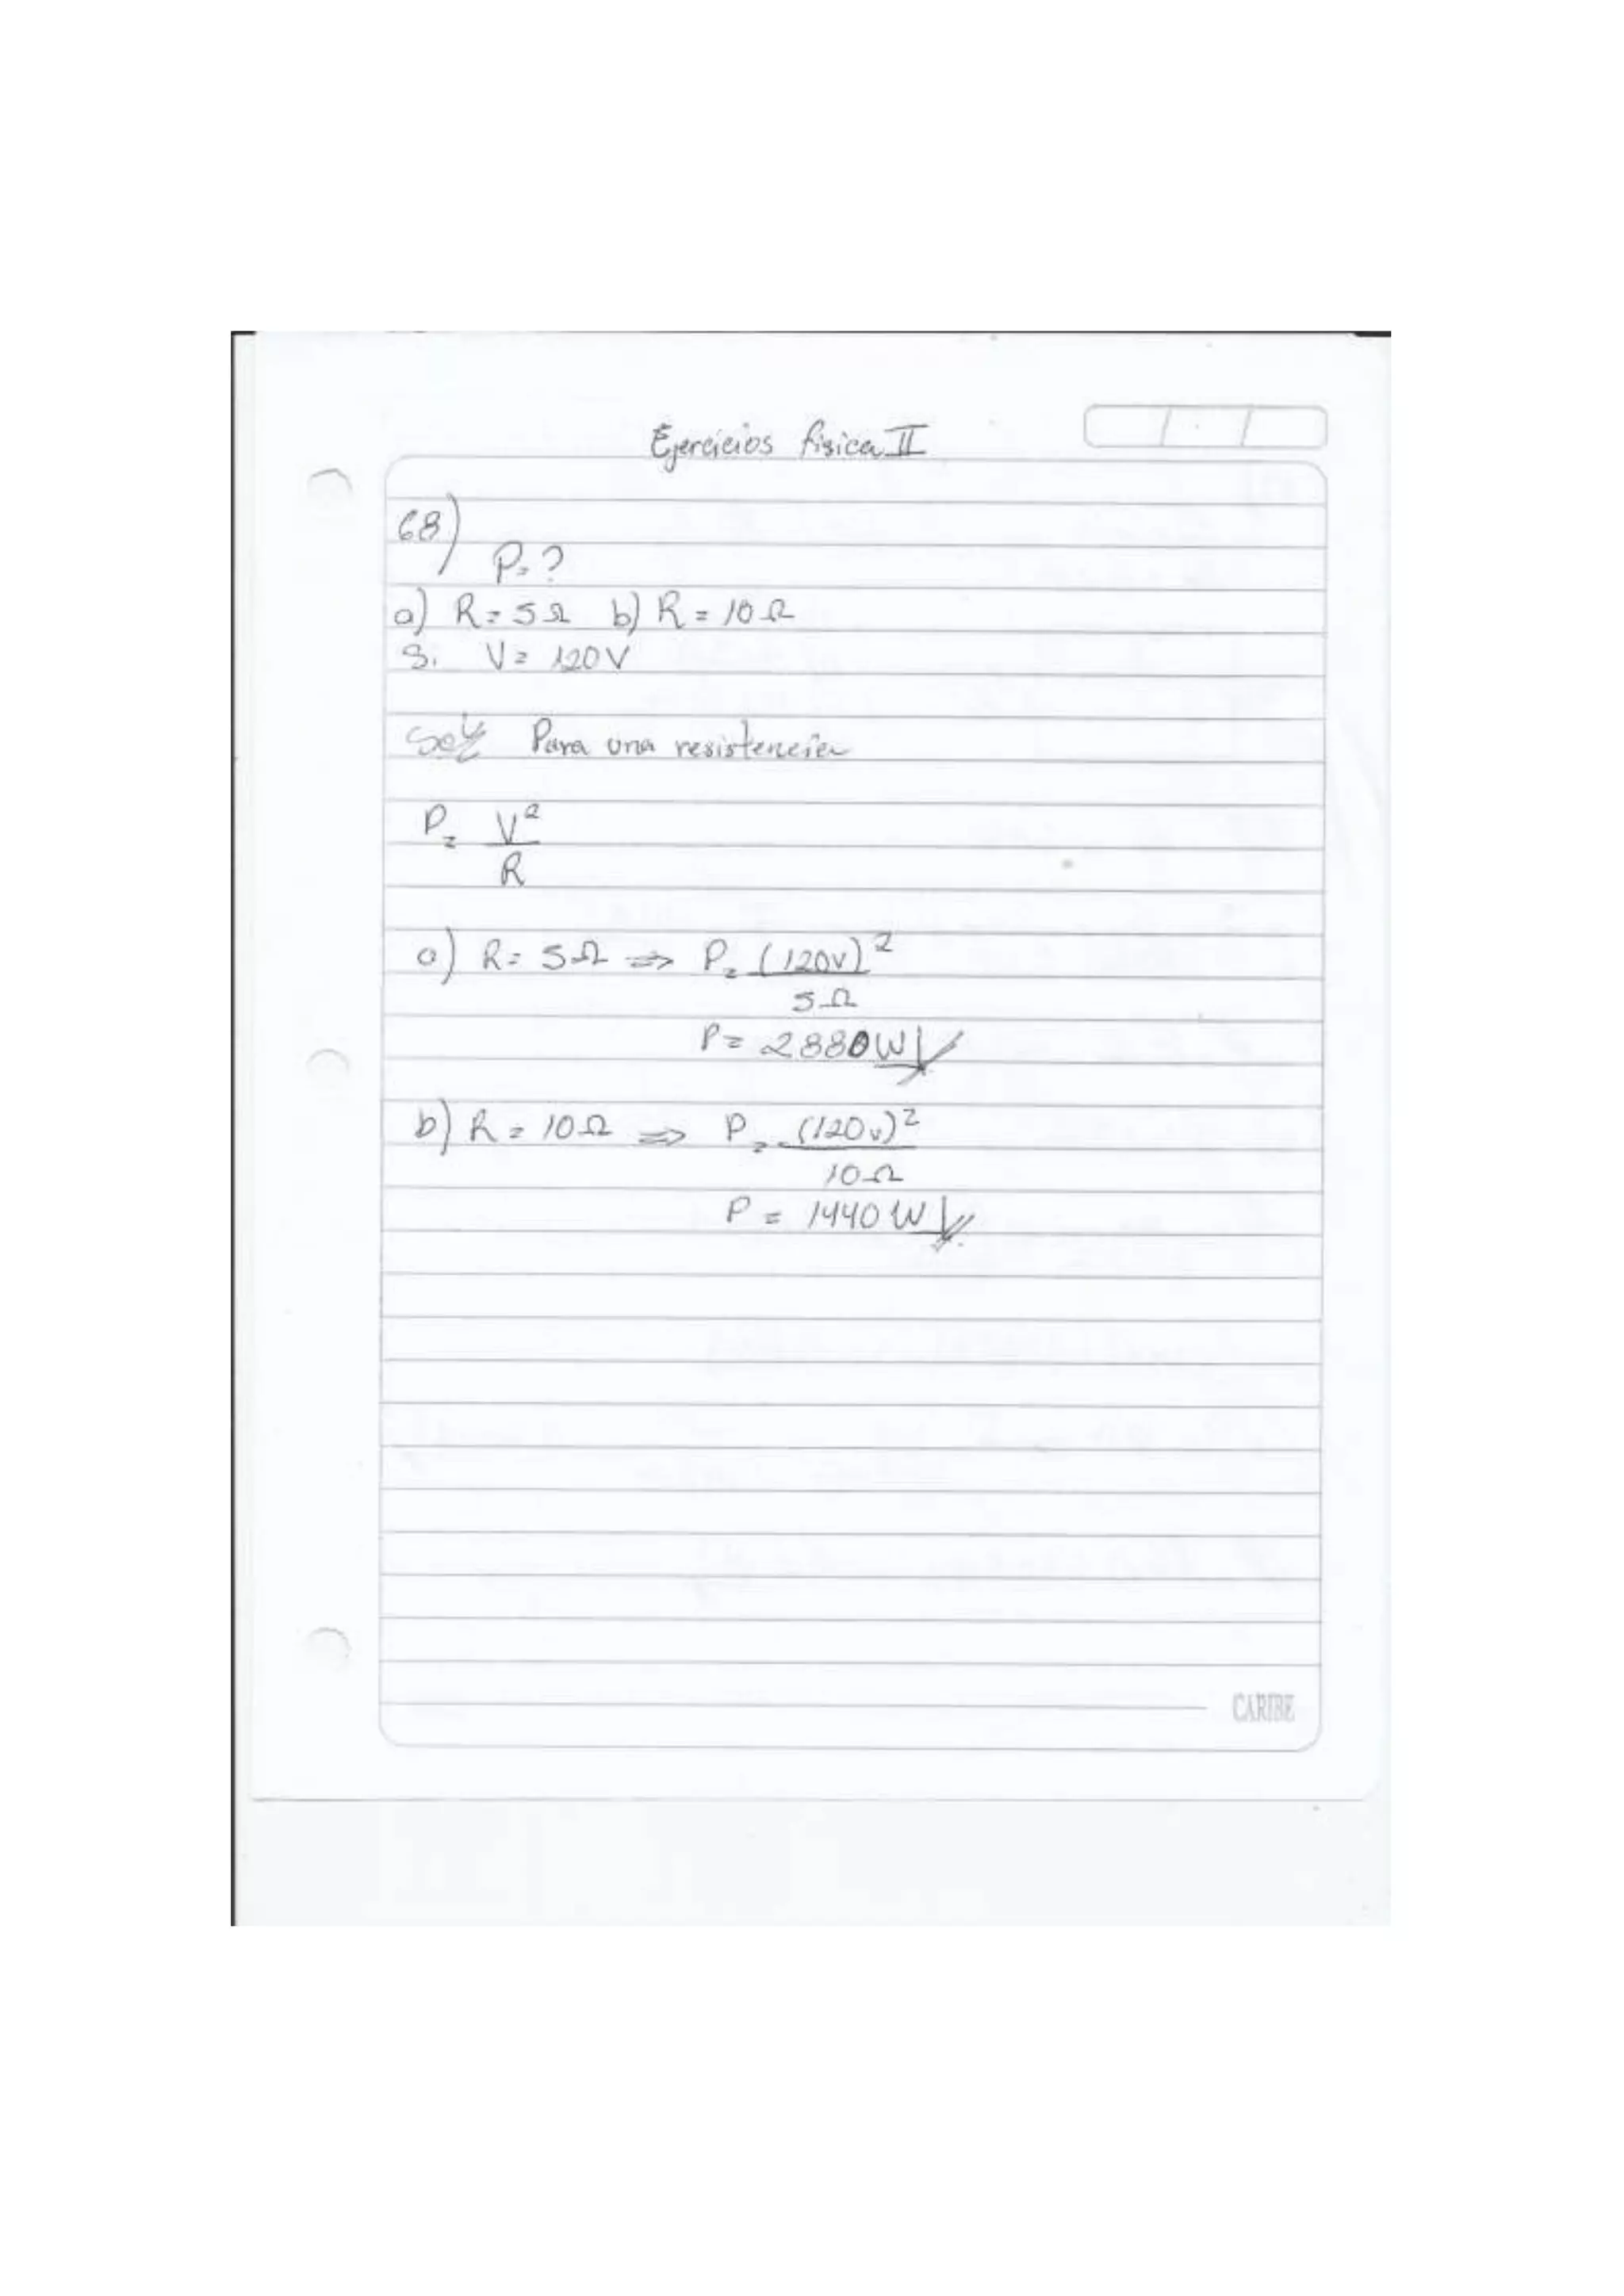 Ejercicios física II
68)
P=?
a) R = 5Ω b) R = 10Ω
Si V = 120V
Sol/ Para una resistencia
P = V²
R
a) R = 5Ω ⇒ P = (120v)²
5Ω
P = 2880W
b) R = 10Ω ⇒ P = (120v)²
10Ω
P = 1440W
CARIBE